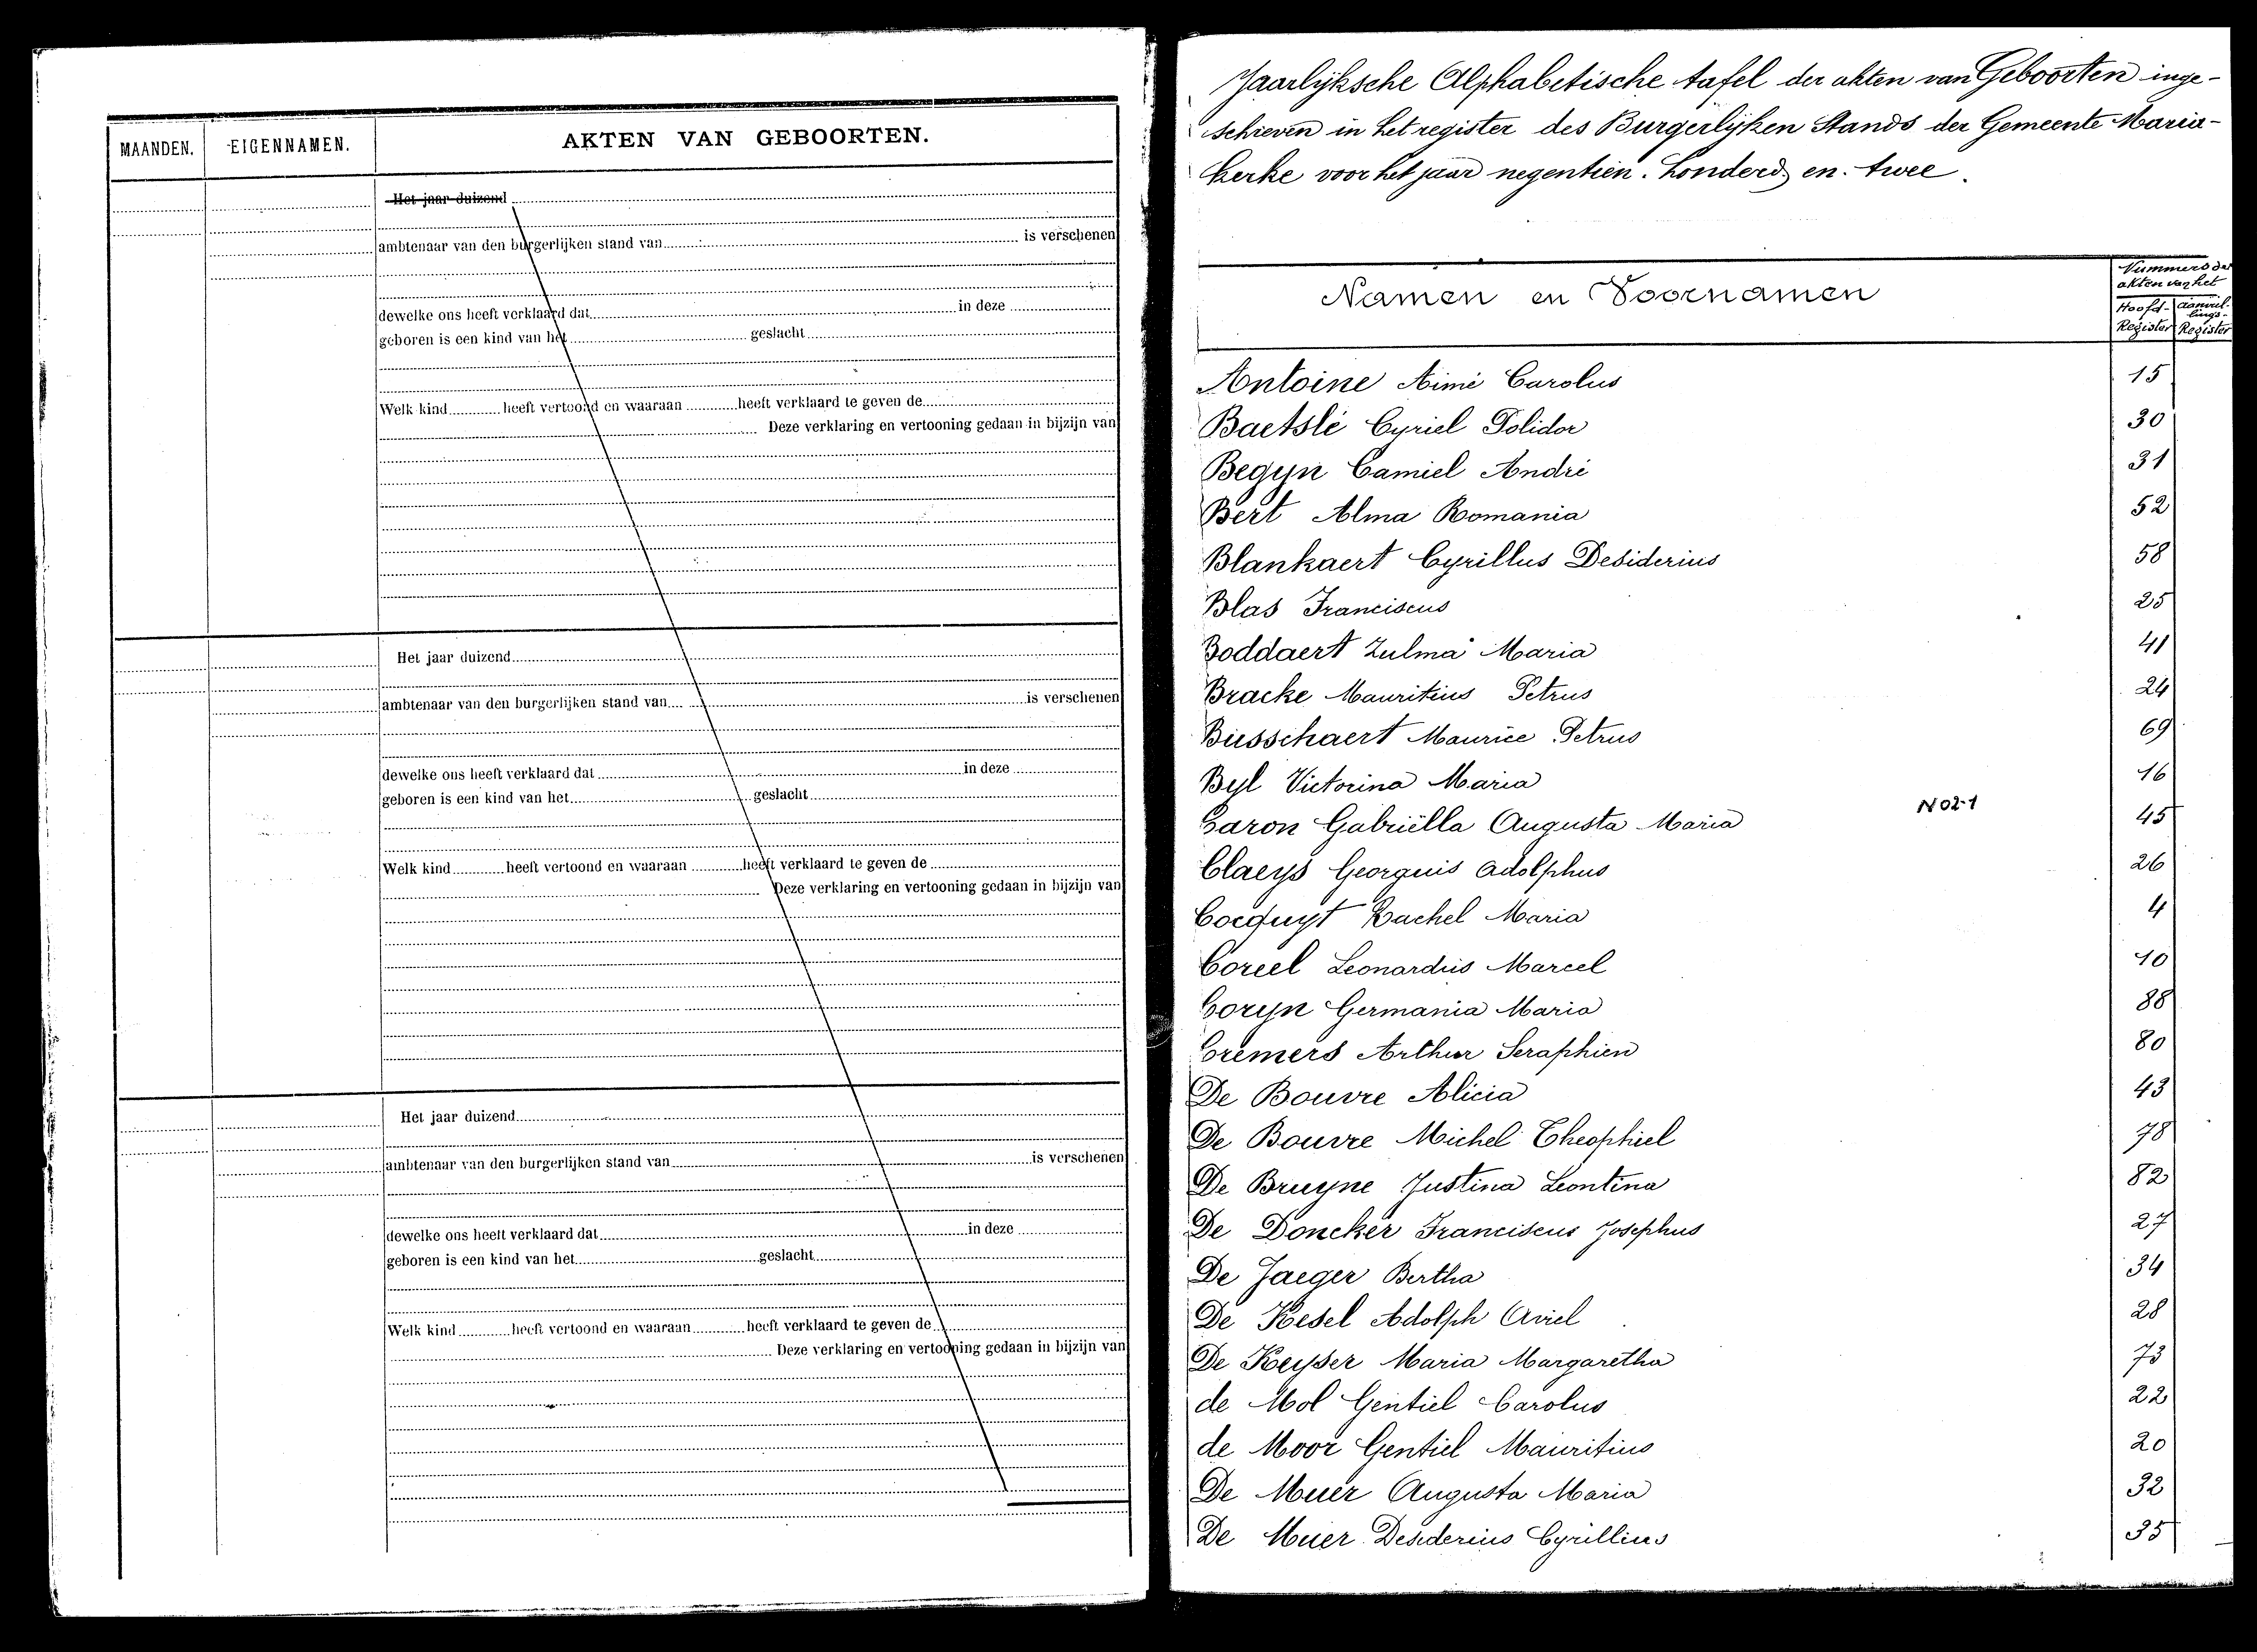 MAANDEN. EIGENNAMEN. AKTEN VAN GEBOORTEN.
Het jaar duizend
ambtenaar van den burgerlijken stand van is verschenen
dewelke ons heeft verklaard dat in deze
geboren is een kind van het geslacht
Welk kind heeft vertoond en waaraan heeft verklaard te geven de
Deze verklaring en vertooning gedaan in bijzijn van
Het jaar duizend
ambtenaar van den burgerlijken stand van is verschenen
dewelke ons heeft verklaard dat in deze
geboren is een kind van het geslacht
Welk kind heeft vertoond en waaraan heeft verklaard te geven de
Deze verklaring en vertooning gedaan in bijzijn van
Het jaar duizend
ambtenaar van den burgerlijken stand van is verschenen
dewelke ons heeft verklaard dat in deze
geboren is een kind van het geslacht
Welk kind heeft vertoond en waaraan heeft verklaard te geven de
Deze verklaring en vertooning gedaan in bijzijn van
Jaarlijksche Alphabetische tafel der akten van Geboorten inge-
schreven in het register des Burgerlijken Stands der Gemeente Maria-
kerke voor het jaar negentien. honderd en. twee.
Namen en Voornamen
Nummers der
akten van het
Hoofd- aanvul-
lings-
Register Register
Antoine Aimé Carolus 15
Baetslé Cyriel Polidor 30
Begyn Camiel André 31
Bert Alma Romania 52
Blankaert Cyrillus Desiderius 58
Blas Franciscus 25
Boddaert Zulma Maria 41
Bracke Mauritius Petrus 24
Busschaert Maurice Petrus 69
Byl Victorina Maria 16
Caron Gabriëlla Augusta Maria N02-1 45
Claeys Georguis Adolphus 26
Cocquyt Rachel Maria 4
Coreel Leonardus Marcel 10
Coryn Germania Maria 88
Cremers Arthur Seraphien 80
De Bouvre Alicia 43
De Bouvre Michel Theophiel 78
De Bruyne Justina Leontina 82
De Doncker Franciscus Josephus 27
De Jaeger Bertha 34
De Kesel Adolph Aviel 28
De Keyser Maria Margaretha 73
de Mol Gentiel Carolus 22
de Moor Gentiel Mauritius 20
De Muer Augusta Maria 32
De Muer Desiderius Cyrillius 35